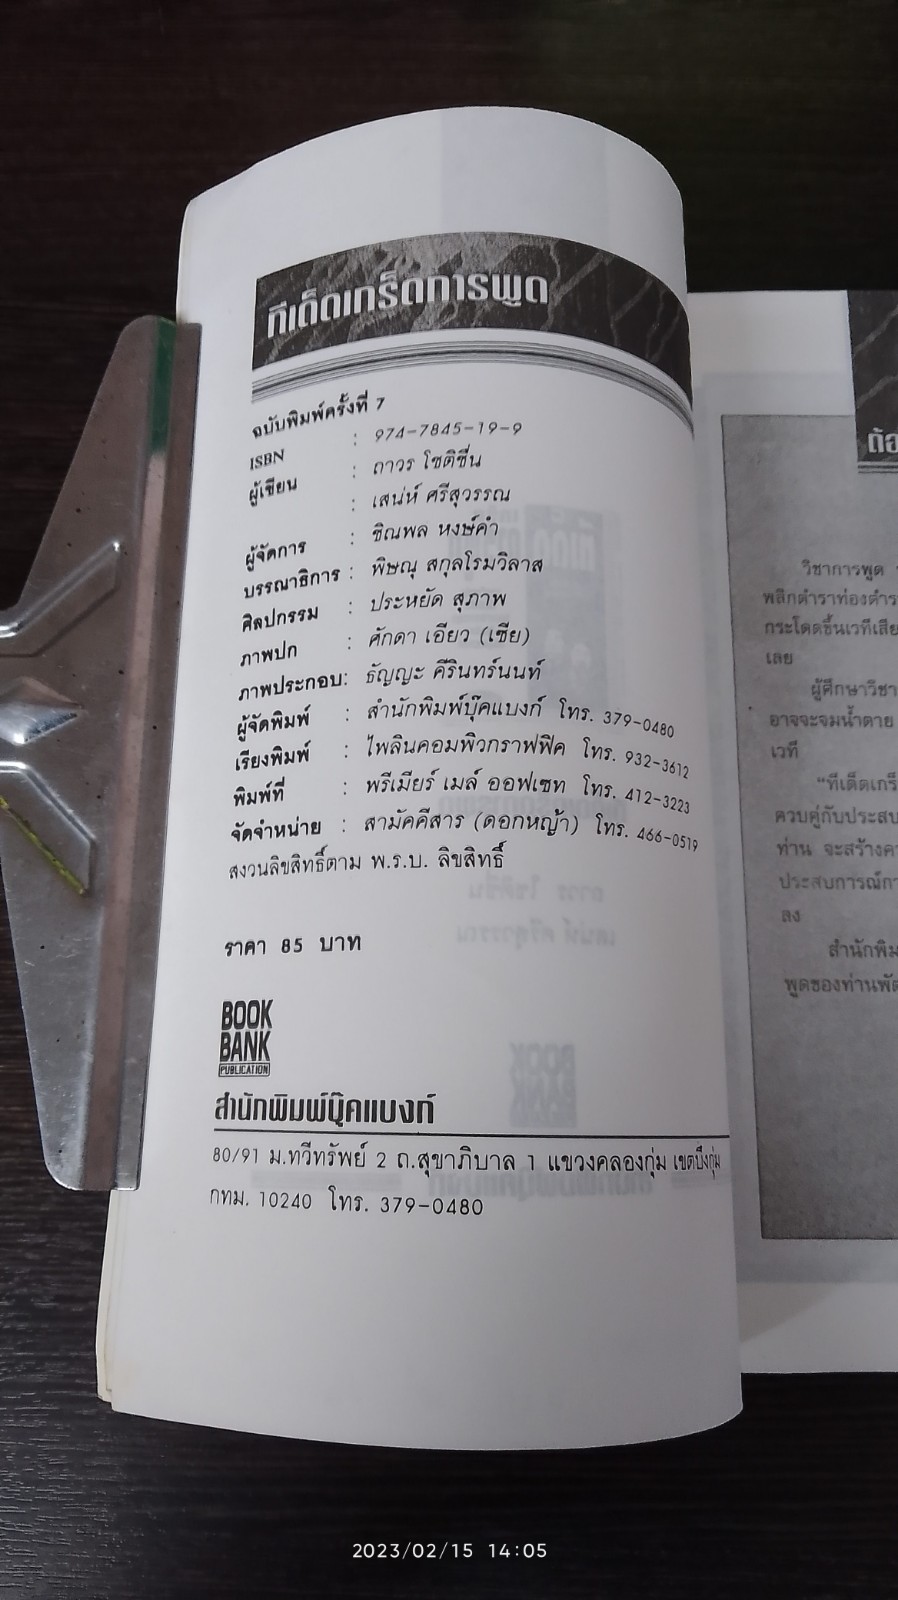 ทีเด็ดเกร็ดการพูด
ฉบับพิมพ์ครั้งที่ 7
ISBN : 974-7845-19-9
ผู้เขียน : ถาวร โชติชื่น
: เสน่ห์ ศรีสุวรรณ
ผู้จัดการ : ชิณพล หงษ์คำ
บรรณาธิการ : พิษณุ สกุลโรมวิลาส
ศิลปกรรม : ประหยัด สุภาพ
ภาพปก : ศักดา เอียว (เซีย)
ภาพประกอบ: ธัญญะ คีรินทร์นนท์
ผู้จัดพิมพ์ : สำนักพิมพ์บุ๊คแบงก์ โทร. 379-0480
เรียงพิมพ์ : ไพลินคอมพิวกราฟฟิค โทร. 932-3612
พิมพ์ที่ : พรีเมียร์ เมล์ ออฟเซท โทร. 412-3223
จัดจำหน่าย : สามัคคีสาร (ดอกหญ้า) โทร. 466-0519
สงวนลิขสิทธิ์ตาม พ.ร.บ. ลิขสิทธิ์
ราคา 85 บาท
BOOK
BANK
PUBLICATION
สำนักพิมพ์บุ๊คแบงก์
80/91 ม.ทวีทรัพย์ 2 ถ.สุขาภิบาล 1 แขวงคลองกุ่ม เขตบึงกุ่ม
กทม. 10240 โทร. 379-0480
วิชาการพูด
พลิกตำราท่องตำรา
กระโดดขึ้นเวทีเสีย
เลย
ผู้ศึกษาวิชา
อาจจะจมน้ำตาย
เวที
"ทีเด็ดเกร็
ควบคู่กับประสบ
ท่าน จะสร้างคว
ประสบการณ์กา
ลง
สำนักพิม
พูดของท่านพัด
2023/02/15 14:05